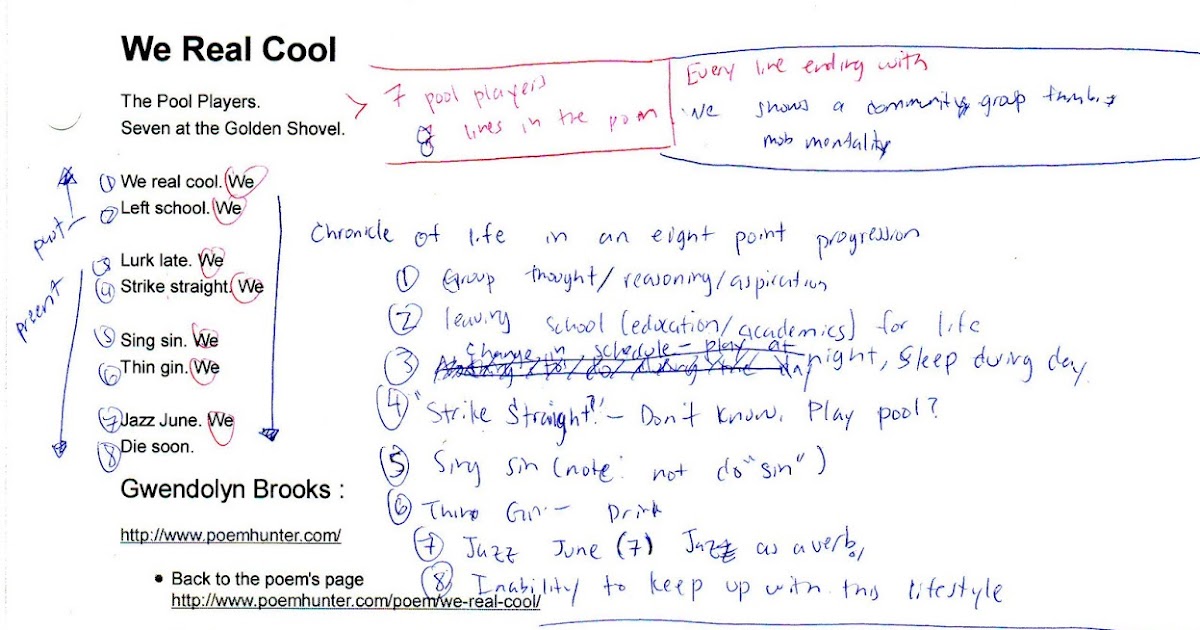 We Real Cool
The Pool Players.
Seven at the Golden Shovel.
7 pool players
8 lines in the poem
Every line ending with
We shows a community group
mob mentality
① We real cool. We
② Left school. We
past
③ Lurk late. We
④ Strike straight. We
present
⑤ Sing sin. We
⑥ Thin gin. We
⑦ Jazz June. We
⑧ Die soon.
Gwendolyn Brooks :
http://www.poemhunter.com/
• Back to the poem's page
http://www.poemhunter.com/poem/we-real-cool/
Chronicle of life in an eight point progression
① Group thought/reasoning/aspiration
② leaving school (education/academics) for life
③ Change in schedule – play at night, sleep during day
④ "Strike Straight?" – Don't know. Play pool?
⑤ Sing sin (note: not do "sin")
⑥ Gin – Drink
⑦ Jazz June (7) Jazz as a verb,
⑧ Inability to keep up with this lifestyle